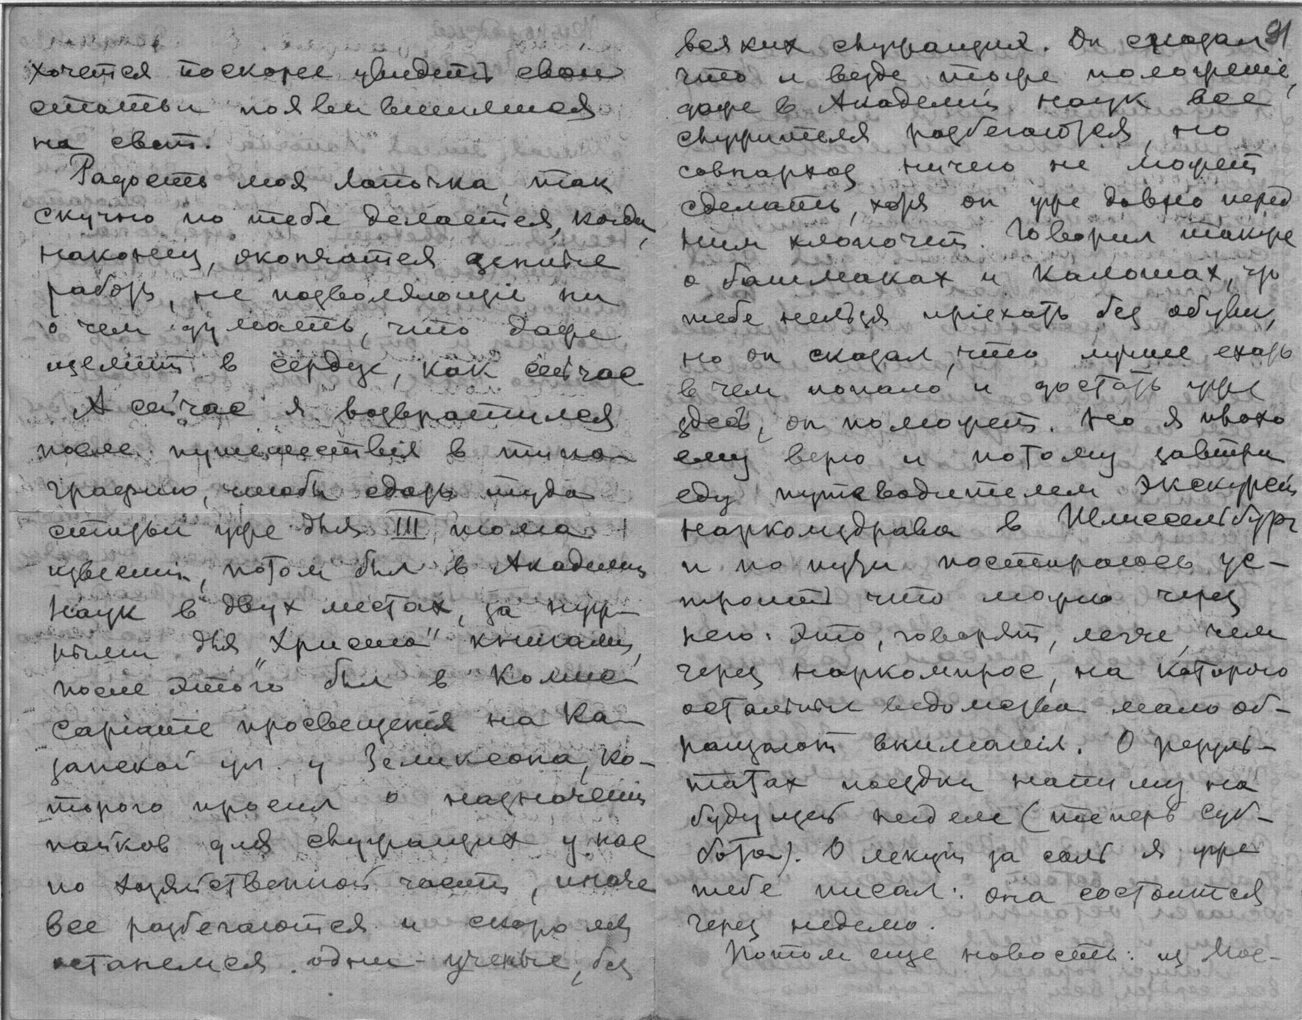 хочется поскорее увидеть свои
статьи появившимися
на свет.
Радость моя Лапочка, так
скучно по тебе делается, когда,
наконец, окончатся
работы, не позволяющіе ни
о чем думать, что даже
щемит в сердце, как сейчас
А сейчас я возвратился
после путешествія в типо-
графию, чтобы сдать туда
статьи уже для III тома
известий, потом был в Академии
Наук в двух местах, за нуж-
ными для "Христа" книгами,
после этого был в Комис-
саріате просвещенія на Ка-
занской ул. у Зеликсона, ко-
торого просил о назначении
пайков для служащих у нас
по хозяйственной части, иначе
все разбегаются и скоро мы
останемся одни ученые, без
91
всяких служащих. Он сказал
что и везде тоже положеніе,
даже в Академии наук все
служителя разбегаются, но
совнархоз ничего не может
сделать, хотя он уже давно перед
ним хлопочет. Говорил также
о башмаках и калошах, что
тебе нельзя пріехать без обуви,
но он сказал, что лучше ехать
в чем попало и достать уже
здесь, он поможет. Но я плохо
ему верю и потому завтра
еду путеводителем экскурсии
наркомздрава в Шлиссельбург
и по пути постараюсь ус-
троить что можно через
него. Это, говорят, легче, чем
через наркомпрос, на которого
остальные ведомства мало об-
ращают вниманія. О резуль-
татах поездки напишу на
будущей неделе (теперь суб-
бота). О лекции за соль я уже
тебе писал: она состоится
через неделю.
Потом еще новость: из Мос-